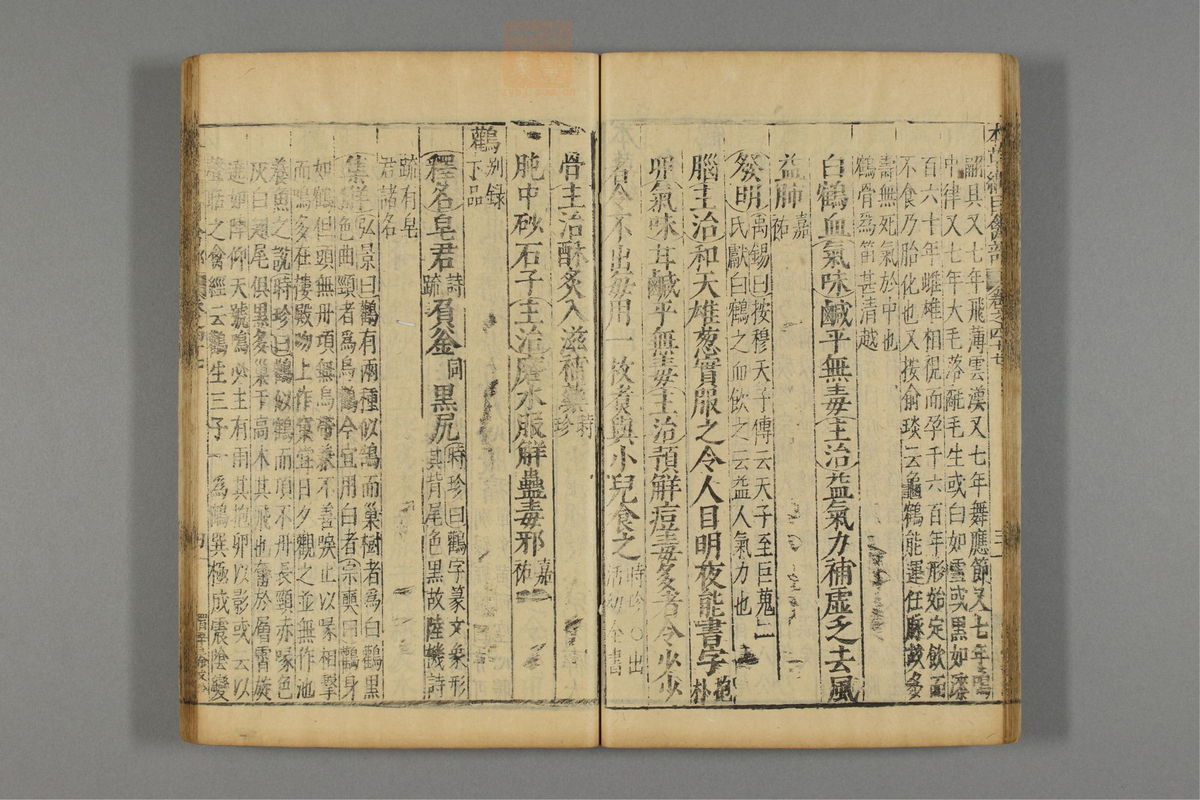 本草綱目禽部 卷之四十七
詔具又七年飛薄雲漢又七年舞應節又七年鳴
中律又七年大毛落氄毛生或白如雪或黑如漆
百六十年雌雄相視而孕千六百年形始定飲而
不食乃胎化也又按俞琰云龜鶴能運任脉故多
壽無死氣於中也
鶴骨爲笛甚清越
白鶴血氣味鹹平無毒主治益氣力補虛乏去風
益肺嘉祐
發明禹錫曰按穆天子傳云天子至巨蒐二
氏獻白鶴之血飲之云益人氣力也
腦主治和天雄葱實服之令人目明夜能書字抱朴
卵氣味甘鹹平無毒主治預解痘毒多者令少少
者令不出每用一枚煮與小兒食之時珍○出活幼全書
骨主治酥炙入滋補藥時珍
肫中砂石子主治磨水服解蠱毒邪嘉祐
鸛別録下品
釋名皂君詩疏負釜同黑尻時珍曰鸛字篆文象形
其背尾色黑故陸機詩
疏有皂
君諸名
集解弘景曰鸛有兩種似鵠而巢樹者爲白鸛黑
色曲頸者爲烏鸛今宜用白者宗奭曰鸛身
如鶴但頭無丹項無烏帶兼不善唳止以喙相擊
而鳴多在樓殿吻上作窠嘗日夕觀之並無作池
養魚之說時珍曰鸛似鶴而頂不丹長頸赤喙色
灰白翅尾俱黑多巢于高木其飛也奮於層霄旋
遶如陣仰天號鳴必主有雨其抱卵以影或云以
聲聒之禽經云鸛生三子一爲鶴巽極成震陰變